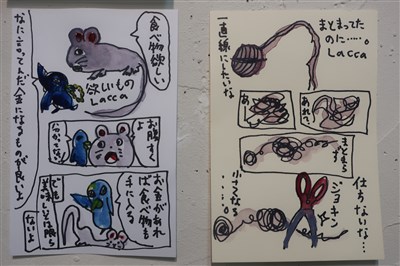 食べ物欲しい
欲しいもの
Lacca
なに言ってんだ金になるものが良いよ
お腹すくよ
お金があれば食べ物も手に入る
でも美味しいとは限らないよ
まとまってた
のに……。
Lacca
一直線にしたいな
あれ、
あれ
まとまらず
仕方ないな…
ジョキン
小さくなる……。